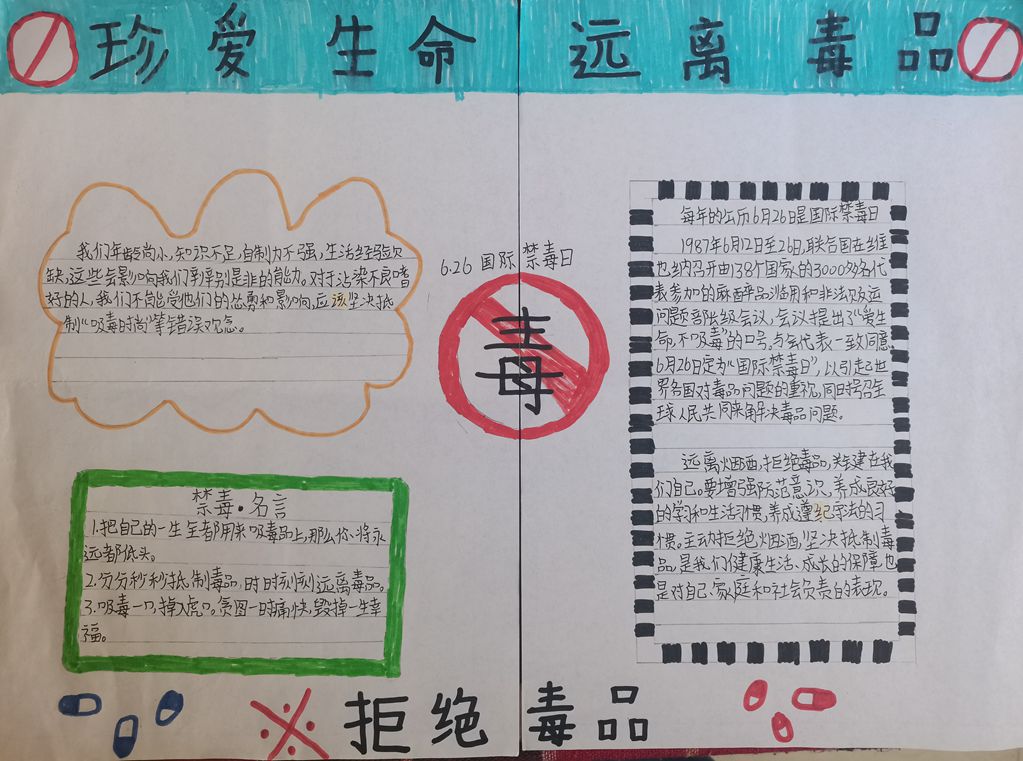 珍爱生命 远离毒品
我们年龄尚小,知识不足,自制力不强,生活经验欠
缺,这些会影响我们判辨别是非的能力。对于沾染不良嗜
好的人,我们不能受他们的怂勇和影响,应该坚决抵
制"吸毒时尚"等错误观念。
6.26 国际禁毒日
毒
禁毒·名言
1.把自己的一生全都用来吸毒品上,那么你将永
远都低头。
2.分分秒秒抵制毒品,时时刻刻远离毒品。
3.吸毒一口,掉入虎口。贪图一时痛快,毁掉一生幸
福。
每年的公历6月26日是国际禁毒日
1987年6月12日至26日,联合国在维
也纳召开由138个国家的3000多名代
表参加的麻醉品滥用和非法贩运
问题部长级会议,会议提出了"爱生
命,不吸毒"的口号。与会代表一致同意
6月26日定为"国际禁毒日",以引起世
界各国对毒品问题的重视,同时号召全
球人民共同来解决毒品问题。
远离烟酒,拒绝毒品,关键在我
们自己。要增强防范意识,养成良好
的学习和生活习惯,养成遵纪守法的习
惯。主动拒绝烟酒,坚决抵制毒
品,是我们健康生活、成长的保障也
是对自己、家庭和社会负责的表现。
拒绝毒品